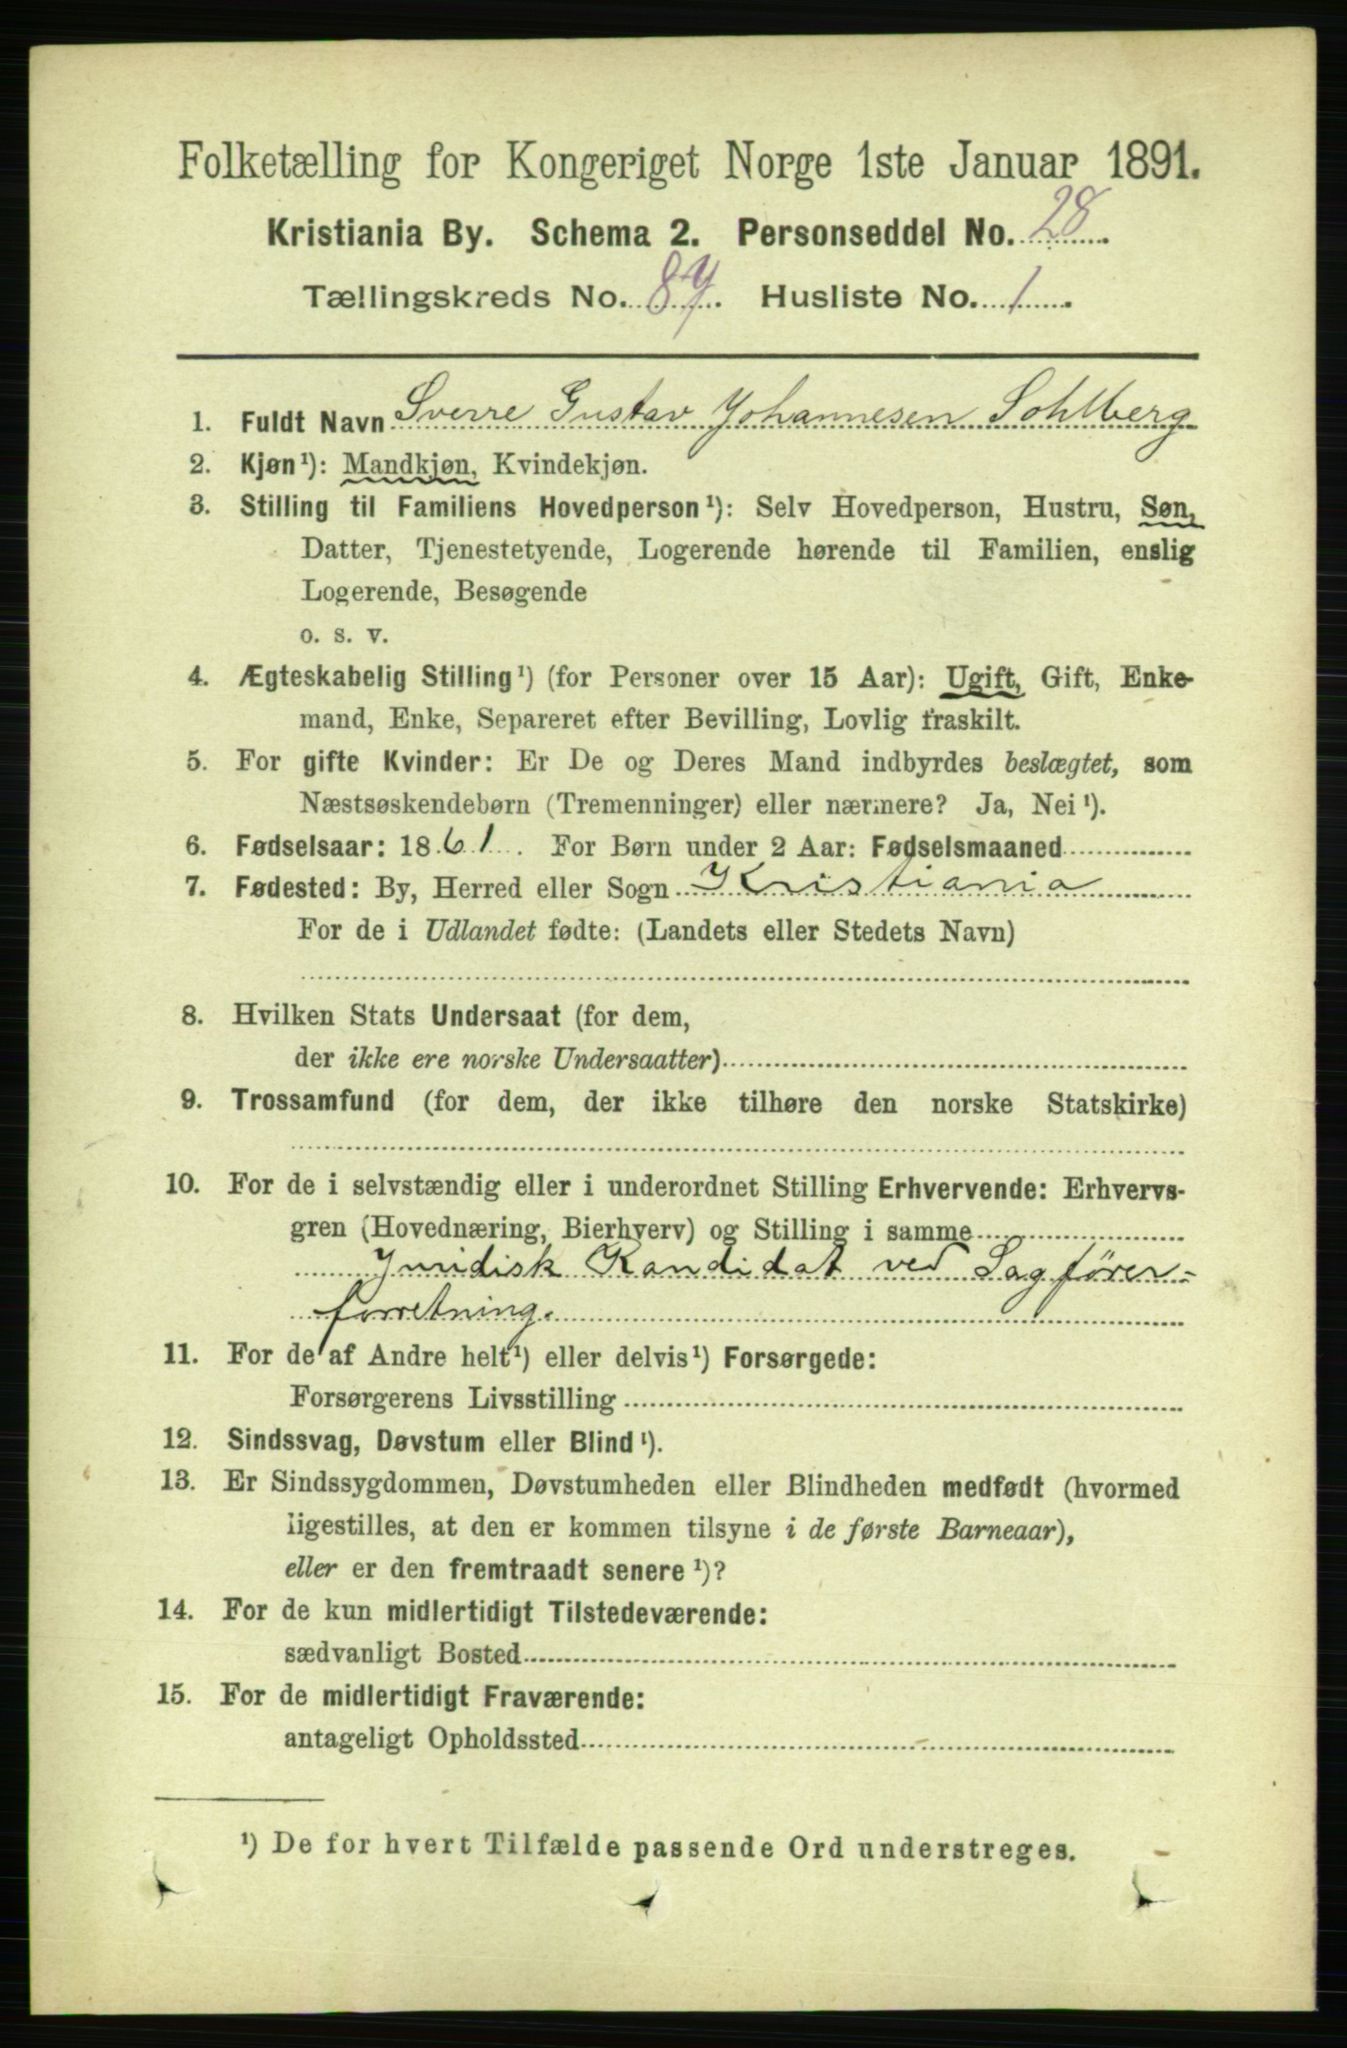 Folketælling for Kongeriget Norge 1ste Januar 1891.
Kristiania By. Schema 2. Personseddel No. 28
Tællingskreds No. 87. Husliste No. 1.
1. Fuldt Navn Sverre Gustav Johannesen Sohlberg
2. Kjøn¹): Mandkjøn, Kvindekjøn.
3. Stilling til Familiens Hovedperson¹): Selv Hovedperson, Hustru, Søn,
Datter, Tjenestetyende, Logerende hørende til Familien, enslig
Logerende, Besøgende
o. s. v.
4. Ægteskabelig Stilling¹) (for Personer over 15 Aar): Ugift, Gift, Enke-
mand, Enke, Separeret efter Bevilling, Lovlig fraskilt.
5. For gifte Kvinder: Er De og Deres Mand indbyrdes beslægtet, som
Næstsøskendebørn (Tremenninger) eller nærmere? Ja, Nei¹).
6. Fødselsaar: 1861. For Børn under 2 Aar: Fødselsmaaned
7. Fødested: By, Herred eller Sogn Kristiania
For de i Udlandet fødte: (Landets eller Stedets Navn)
8. Hvilken Stats Undersaat (for dem,
der ikke ere norske Undersaatter)
9. Trossamfund (for dem, der ikke tilhøre den norske Statskirke)
10. For de i selvstændig eller i underordnet Stilling Erhvervende: Erhvervs-
gren (Hovednæring, Bierhverv) og Stilling i samme
Juridisk Kandidat ved Sagfører-
forretning.
11. For de af Andre helt¹) eller delvis¹) Forsørgede:
Forsørgerens Livsstilling
12. Sindssvag, Døvstum eller Blind¹).
13. Er Sindssygdommen, Døvstumheden eller Blindheden medfødt (hvormed
ligestilles, at den er kommen tilsyne i de første Barneaar),
eller er den fremtraadt senere¹)?
14. For de kun midlertidigt Tilstedeværende:
sædvanligt Bosted
15. For de midlertidigt Fraværende:
antageligt Opholdssted
¹) De for hvert Tilfælde passende Ord understreges.